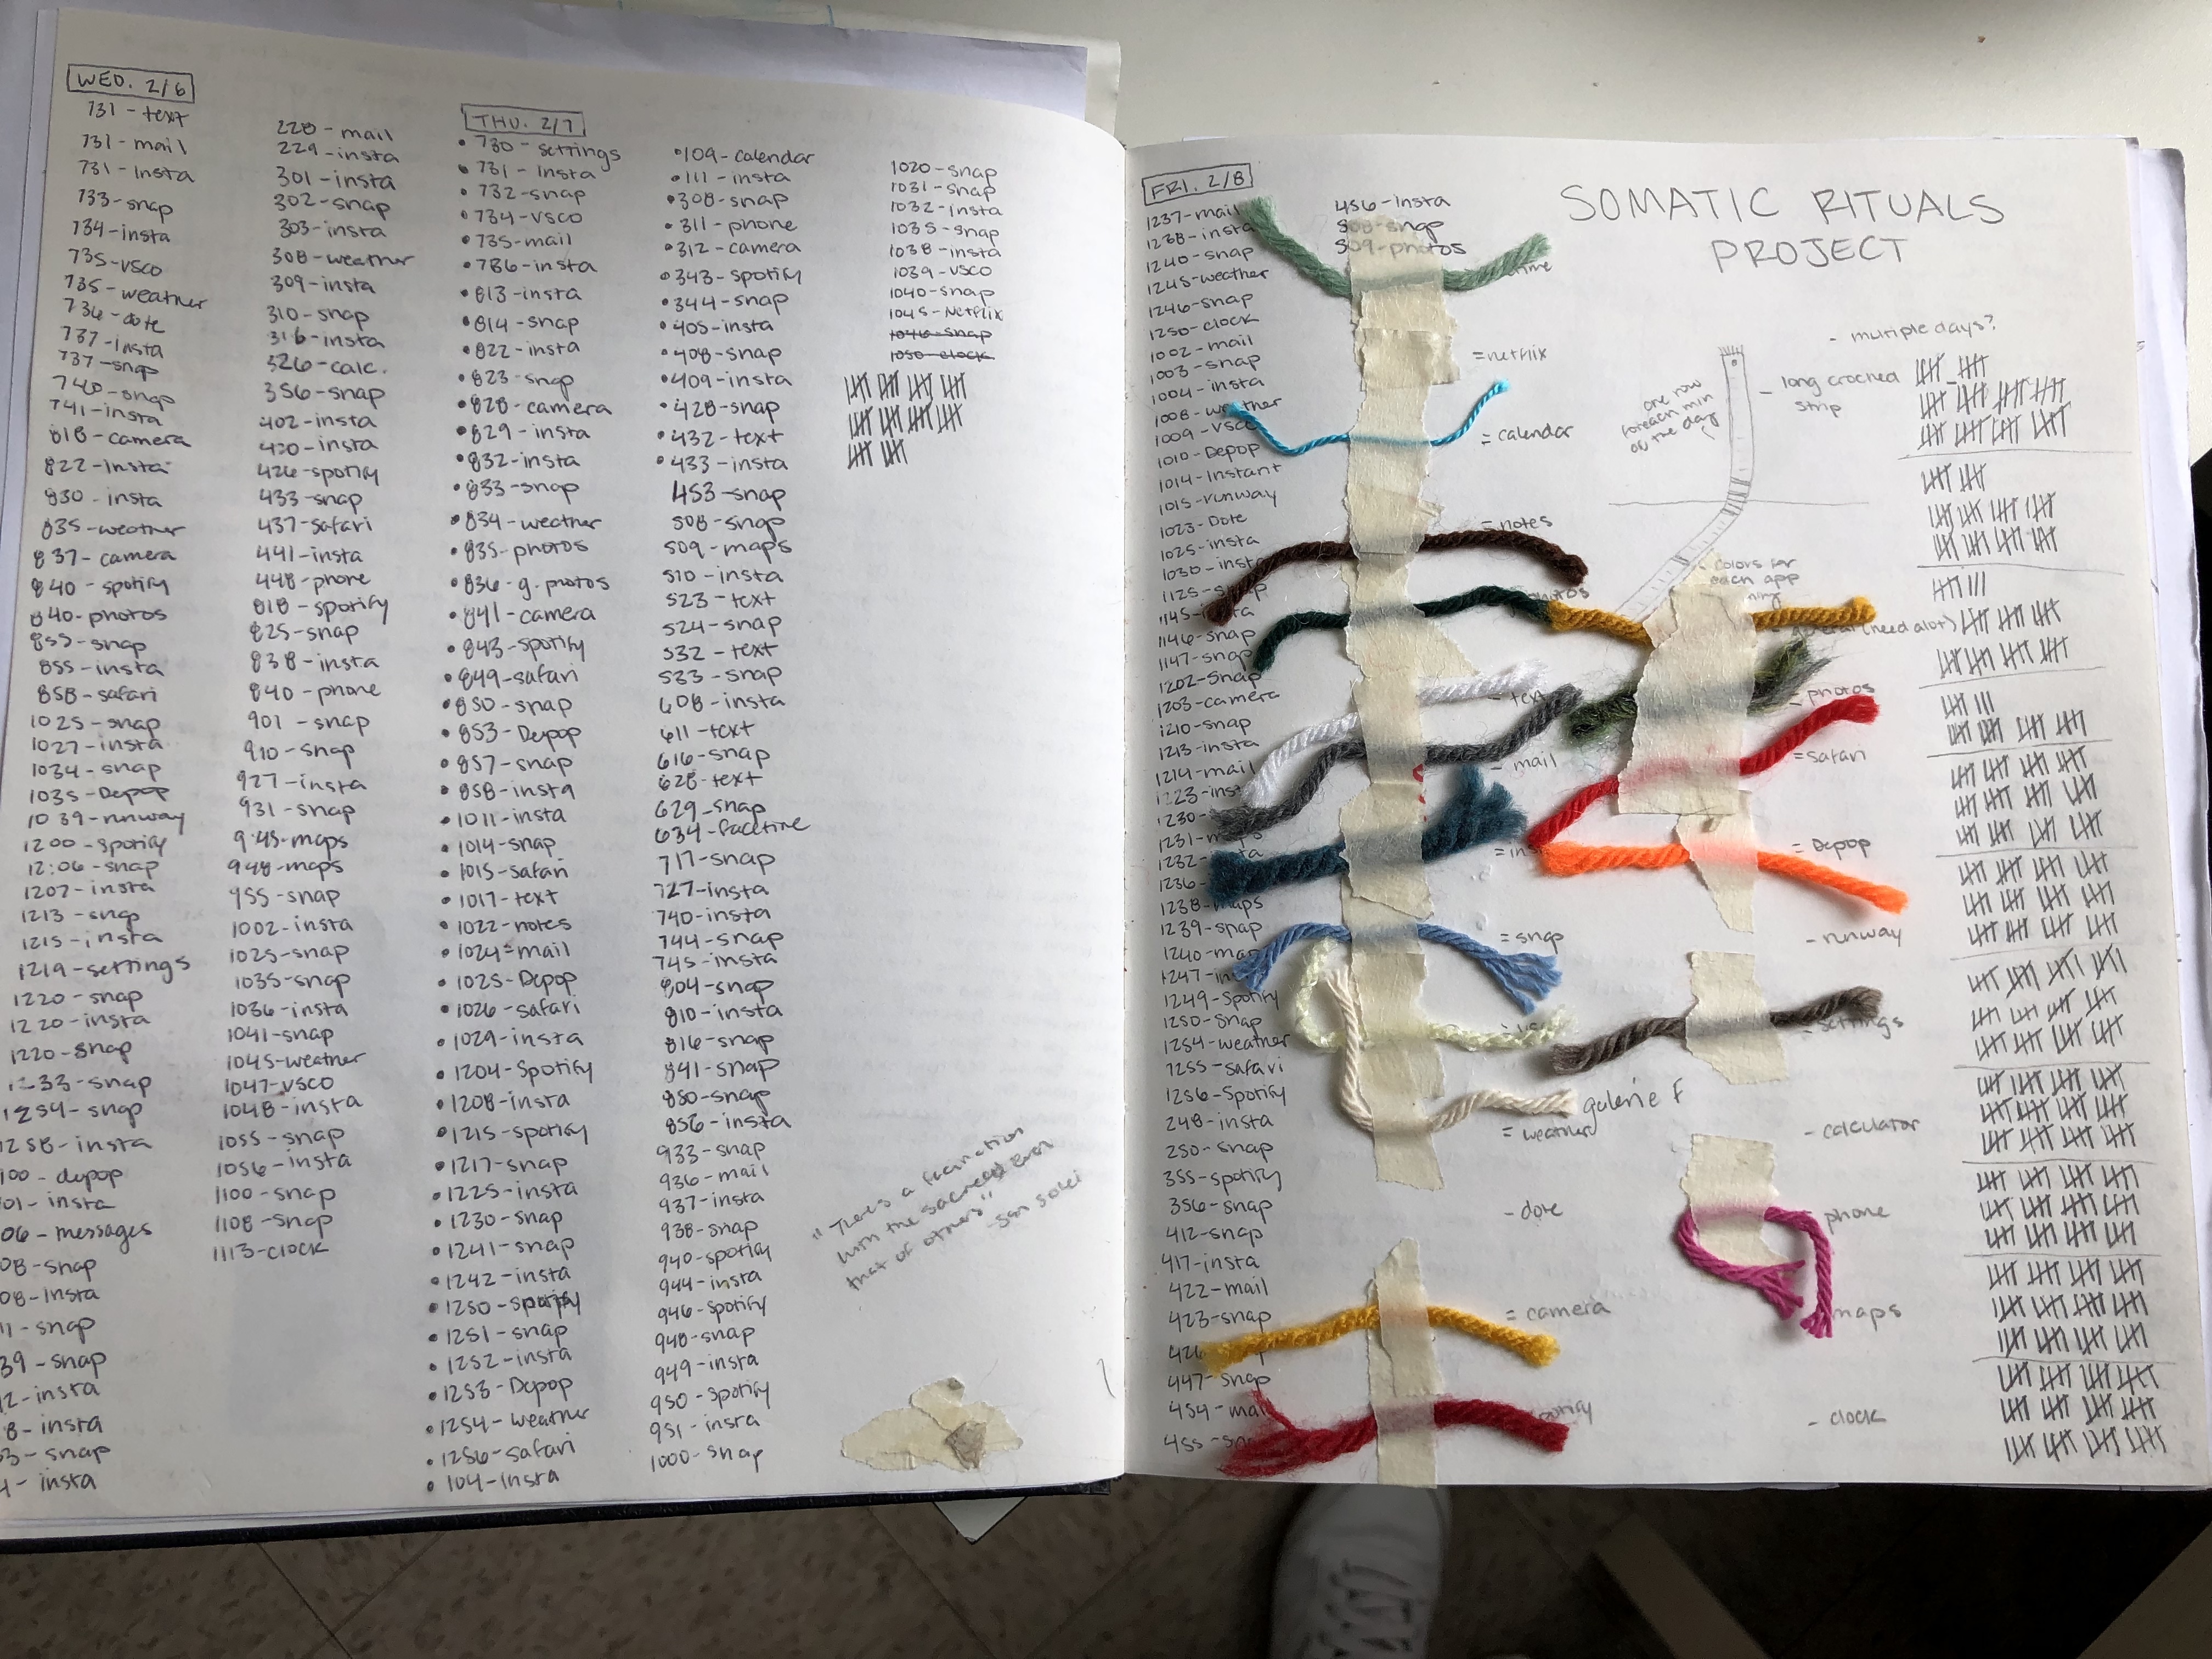 WED. 2/6
731 - text
731 - mail
731 - insta
733 - snap
734 - insta
735 - vsco
735 - weather
736 - dote
737 - insta
737 - snap
740 - snap
741 - insta
818 - camera
822 - insta
830 - insta
835 - weather
837 - camera
840 - spotify
840 - photos
855 - snap
855 - insta
858 - safari
1025 - snap
1027 - insta
1034 - snap
1035 - Depop
1039 - runway
1200 - spotify
12:06 - snap
1207 - insta
1213 - snap
1215 - insta
1219 - settings
1220 - snap
1220 - insta
1220 - snap
1233 - snap
1254 - snap
1258 - insta
100 - depop
01 - insta
06 - messages
08 - snap
08 - insta
11 - snap
39 - snap
2 - insta
8 - insta
3 - snap
4 - insta
228 - mail
229 - insta
301 - insta
302 - snap
303 - insta
308 - weather
309 - insta
310 - snap
316 - insta
326 - calc.
356 - snap
402 - insta
420 - insta
426 - spotify
433 - snap
437 - safari
441 - insta
448 - phone
818 - spotify
825 - snap
838 - insta
840 - phone
901 - snap
910 - snap
927 - insta
931 - snap
945 - maps
948 - maps
955 - snap
1002 - insta
1025 - snap
1035 - snap
1036 - insta
1041 - snap
1045 - weather
1047 - vsco
1048 - insta
1055 - snap
1056 - insta
1100 - snap
1108 - snap
1113 - clock
THU. 2/7
• 730 - settings
• 731 - insta
• 732 - snap
• 734 - vsco
• 735 - mail
• 736 - insta
• 813 - insta
• 814 - snap
• 822 - insta
• 823 - snap
• 828 - camera
• 829 - insta
• 832 - insta
• 833 - snap
• 834 - weather
• 835 - photos
• 836 - g. photos
• 841 - camera
• 843 - spotify
• 849 - safari
• 850 - snap
• 853 - Depop
• 857 - snap
• 858 - insta
• 1011 - insta
• 1014 - snap
• 1015 - safari
• 1017 - text
• 1022 - notes
• 1024 - mail
• 1025 - Depop
• 1026 - safari
• 1029 - insta
• 1204 - Spotify
• 1208 - insta
• 1215 - spotify
• 1217 - snap
• 1225 - insta
• 1230 - snap
• 1241 - snap
• 1242 - insta
• 1250 - spotify
• 1251 - snap
• 1252 - insta
• 1253 - Depop
• 1254 - weather
• 1256 - safari
• 104 - insta
• 109 - calendar
• 111 - insta
• 308 - snap
• 311 - phone
• 312 - camera
• 343 - spotify
• 344 - snap
• 405 - insta
• 408 - snap
• 409 - insta
• 428 - snap
• 432 - text
• 433 - insta
453 - snap
508 - snap
509 - maps
510 - insta
523 - text
524 - snap
532 - text
533 - snap
608 - insta
611 - text
616 - snap
628 - text
629 - snap
634 - facetime
717 - snap
727 - insta
740 - insta
744 - snap
745 - insta
804 - snap
810 - insta
816 - snap
841 - snap
850 - snap
856 - insta
933 - snap
936 - mail
937 - insta
938 - snap
940 - spotify
944 - insta
946 - spotify
948 - snap
949 - insta
950 - spotify
951 - insta
1000 - snap
1020 - snap
1031 - snap
1032 - insta
1035 - snap
1038 - insta
1039 - vsco
1040 - snap
1045 - Netflix
1046 - snap
1050 - clock
"There's a fascination
with the sacred even
that of others"
FRI. 2/8
1237 - mail
1238 - insta
1240 - snap
1245 - weather
1246 - snap
1250 - clock
1002 - mail
1003 - snap
1004 - insta
1008 - weather
1009 - vsco
1010 - Depop
1014 - Instant
1015 - runway
1023 - Dote
1025 - insta
1030 - insta
1125 - snap
1145 - insta
1146 - snap
1147 - snap
1202 - snap
1203 - camera
1210 - snap
1213 - insta
1214 - mail
1223 - inst
1230 -
1231 - maps
1232 - insta
1236 -
1238 - maps
1239 - snap
1240 - map
1247 - in
1249 - Spotify
1250 - snap
1254 - weather
1255 - safari
1256 - Spotify
248 - insta
250 - snap
355 - spotify
356 - snap
412 - snap
417 - insta
422 - mail
423 - snap
426
447 - snap
454 - mail
455 - snap
456 - insta
508 - snap
509 - photos
SOMATIC RITUALS
PROJECT
= netflix
= calendar
= notes
photos
- text
- mail
= ins
= snap
= weather
galerie F
- dote
= camera
spotify
- multiple days?
- long crocheted
strip
one row
for each min
of the day
colors for
each app
(need alot)
- photos
= safari
= Depop
- runway
- settings
- calculator
- phone
maps
- clock